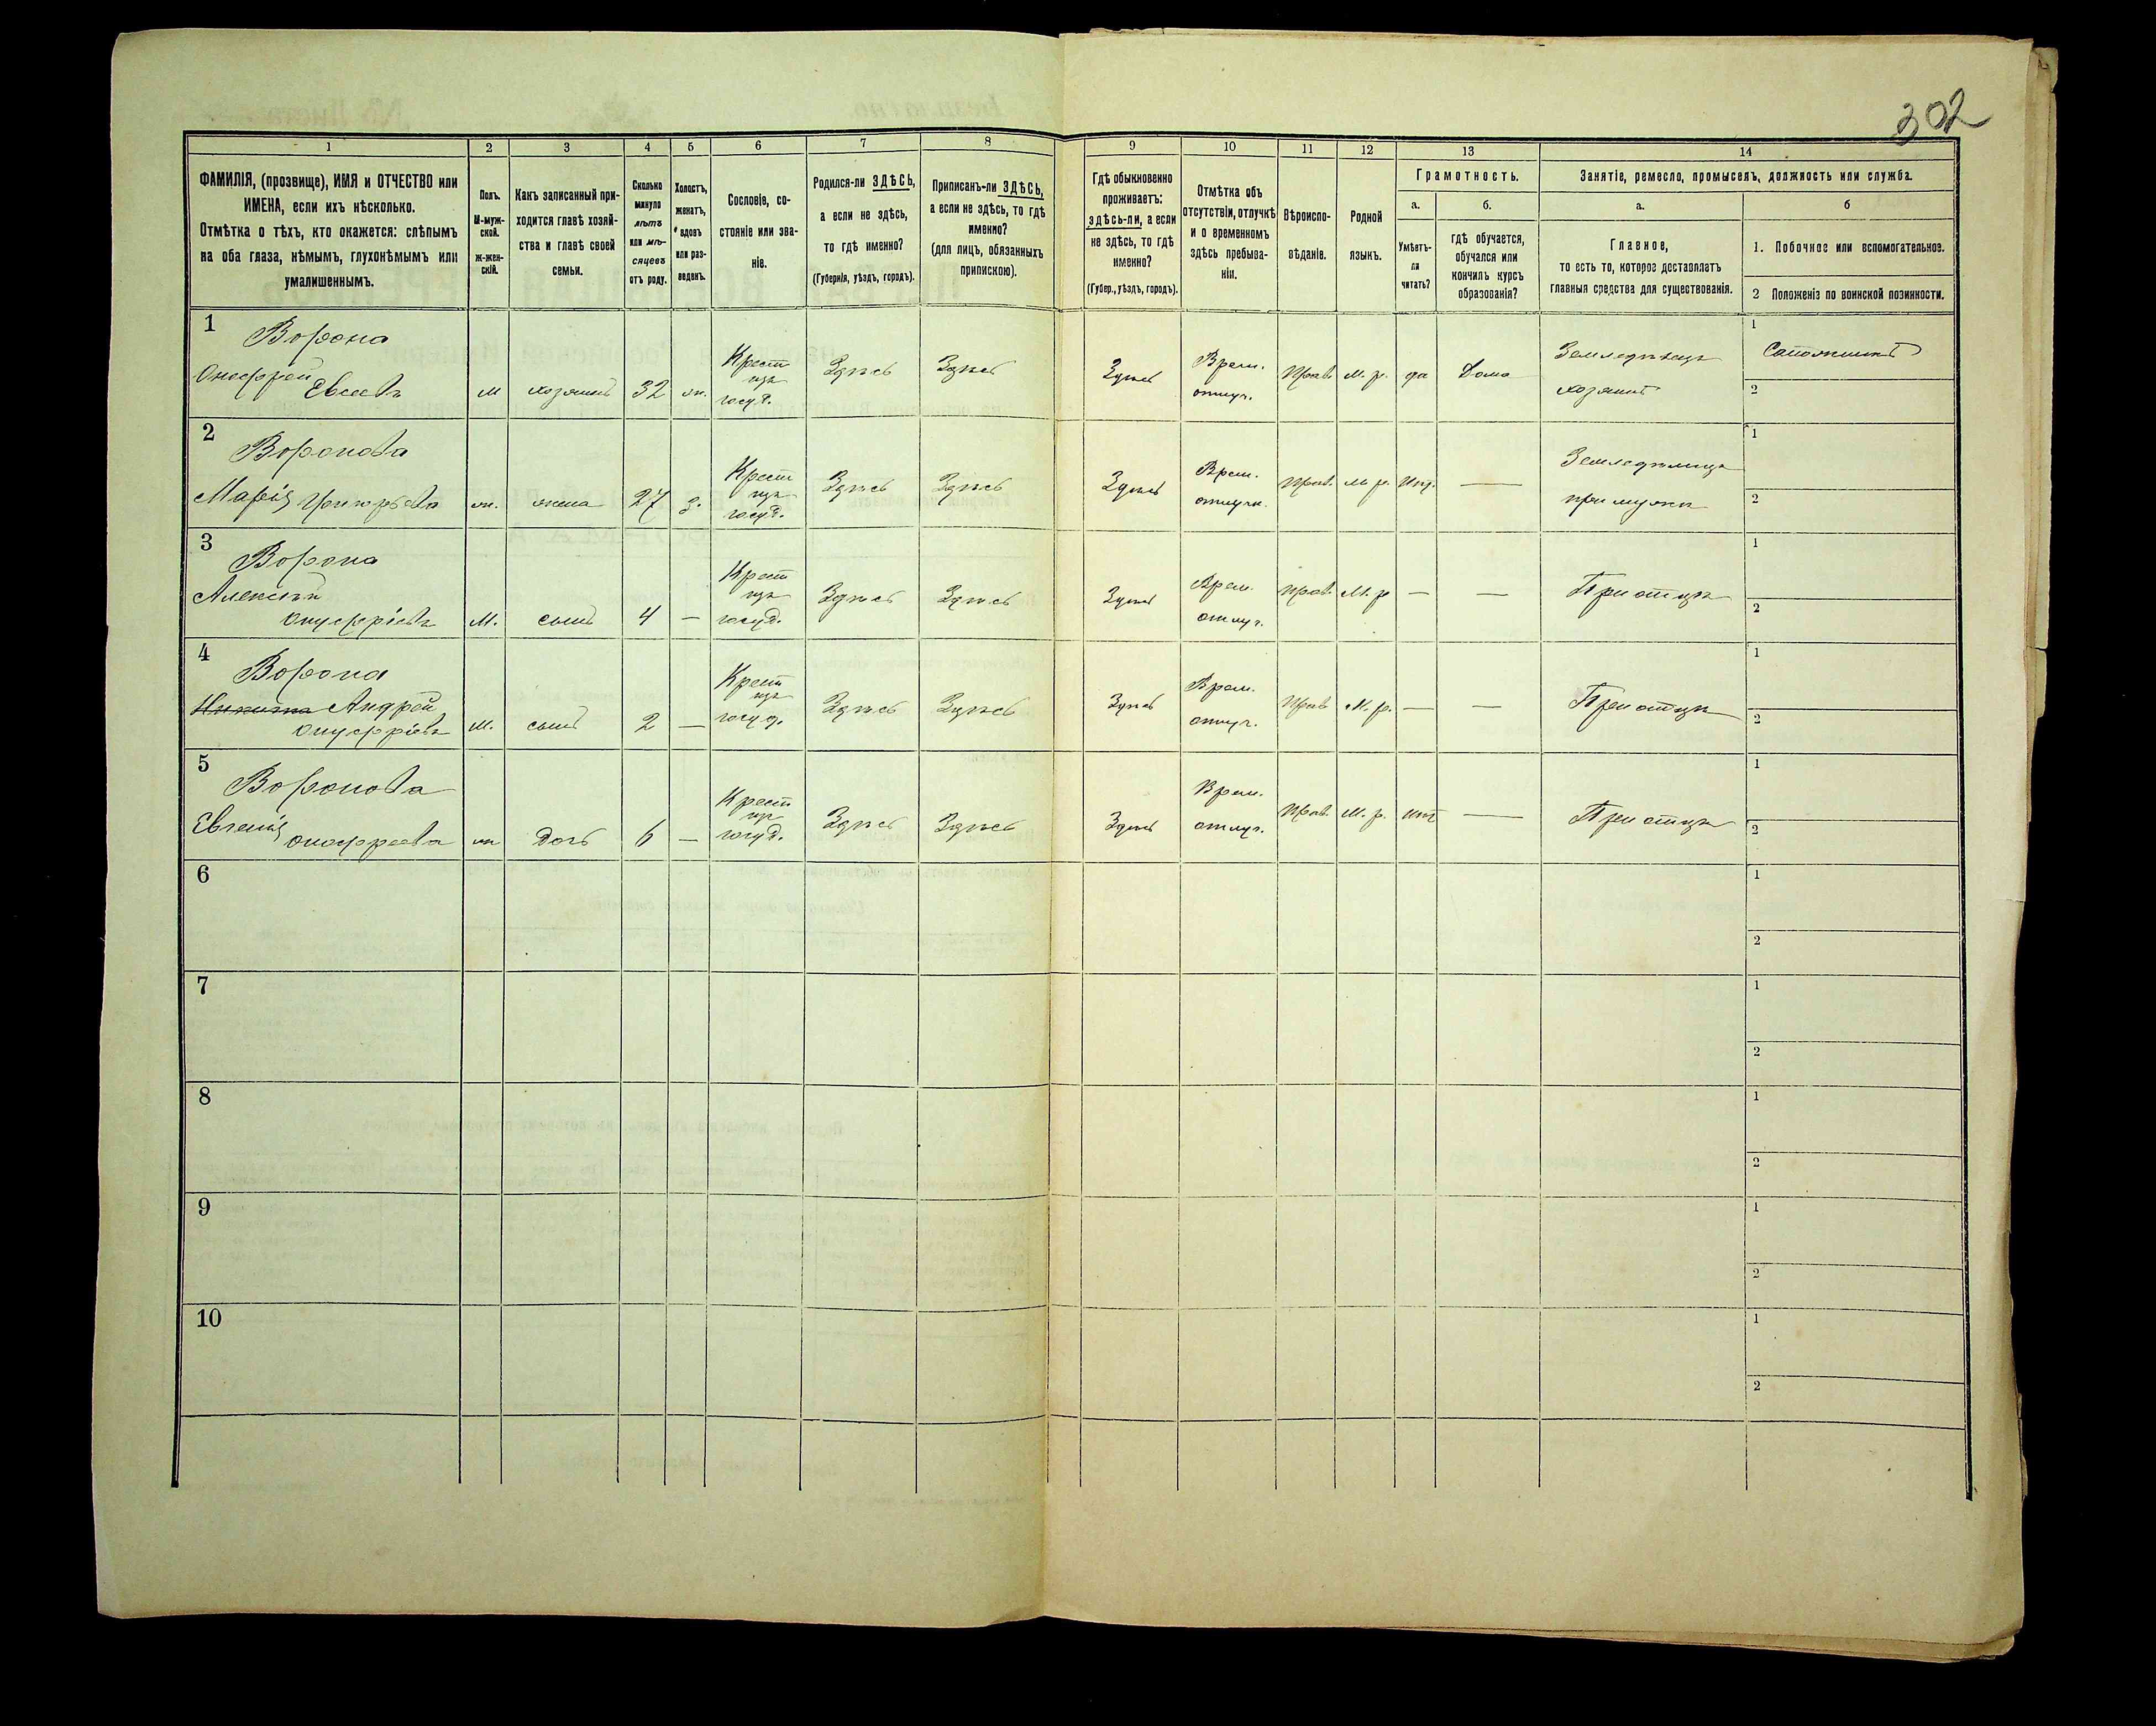 302
1 2 3 4 5 6 7 8 9 10 11 12 13 14
ФАМИЛІЯ, (прозвище), ИМЯ и ОТЧЕСТВО или
ИМЕНА, если ихъ нѣсколько.
Отмѣтка о тѣхъ, кто окажется: слѣпымъ
на оба глаза, нѣмымъ, глухонѣмымъ или
умалишеннымъ.
Полъ.
М-муж-
ской.
ж-жен-
скій.
Какъ записанный при-
ходится главѣ хозяй-
ства и главѣ своей
семьи.
Сколько
минуло
лѣтъ
или мѣ-
сяцевъ
отъ роду.
Холостъ,
женатъ,
вдовъ
или раз-
веденъ.
Сословіе, со-
стояніе или зва-
ніе.
Родился-ли ЗДѢСЬ,
а если не здѣсь,
то гдѣ именно?
(Губернія, уѣздъ, городъ).
Приписанъ-ли ЗДѢСЬ,
а если не здѣсь, то гдѣ
именно?
(для лицъ, обязанныхъ
припискою).
Гдѣ обыкновенно
проживаетъ:
здѣсь-ли, а если
не здѣсь, то гдѣ
именно?
(Губер., уѣздъ, городъ).
Отмѣтка объ
отсутствіи, отлучкѣ
и о временномъ
здѣсь пребыва-
ніи.
Вѣроиспо-
вѣданіе.
Родной
языкъ.
Грамотность.
а.
Умѣетъ-
ли
читать?
б.
гдѣ обучается,
обучался или
кончилъ курсъ
образованія?
Занятіе, ремесло, промыселъ, должность или служба.
а.
Главное,
то есть то, которое доставляетъ
главныя средства для существованія.
б
1. Побочное или вспомогательное.
2 Положеніе по воинской повинности.
1
Ворона
Онофрей
Евсеевъ
м хозяинъ 32 ж.
Крест
изъ
госуд.
Здѣсь Здѣсь Здѣсь
Врем.
отлуч.
Прав. м. р. да Дома
Земледѣлецъ
хозяинъ
1
Сапожникъ
2
2
Воронова
Марія Григорьева
ж. жена 27 з.
Крест
изъ
госуд.
Здѣсь Здѣсь Здѣсь
Врем.
отлучк.
Прав. м. р. —
Земледѣлица
при мужѣ
1
2
3
Ворона
Алексѣй
Онуфріевъ
М. сынъ 4 —
Крест
изъ
госуд.
Здѣсь Здѣсь Здѣсь
Врем.
отлуч.
Прав. М. р. — —
При отцѣ
1
2
4
Ворона
Никита Андрей
Онуфріевъ
м. сынъ 2 —
Крест
изъ
госуд.
Здѣсь Здѣсь Здѣсь
Врем.
отлуч.
Прав М. р. — —
При отцѣ
1
2
5
Воронова
Евгенія
Онофреева
ж дочь 6 —
Крест
изъ
госуд.
Здѣсь Здѣсь Здѣсь
Врем.
отлуч.
Прав. М. р. нѣтъ —
При отцѣ
1
2
6
1
2
7
1
2
8
1
2
9
1
2
10
1
2